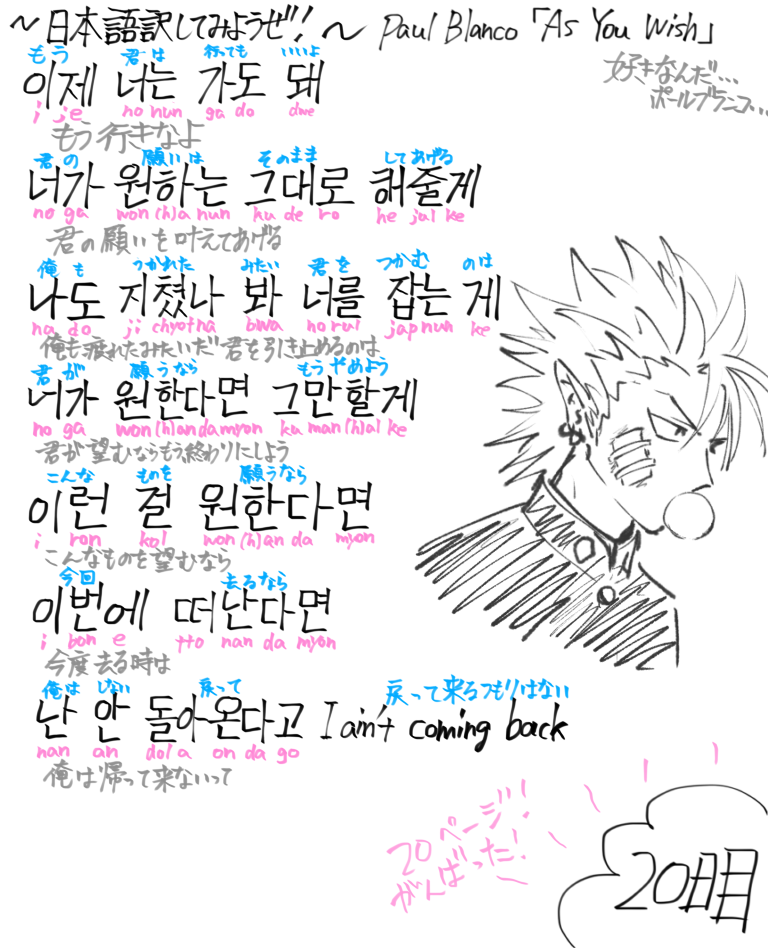 ～日本語訳してみようぜ!～ Paul Blanco「As You Wish」
好きなんだ…
ポールブランコ…
もう 君は 行っても いいよ
이제 너는 가도 돼
i je no nun ga do dwe
もう行きなよ
君の 願いは そのまま してあげる
너가 원하는 그대로 해줄게
no ga won(h)a nun ku de ro he jul ke
君の願いを叶えてあげる
俺も つかれた みたい 君を つかむ のは
나도 지쳤나 봐 너를 잡는 게
na do ji chyotna bwa norul japnun ke
俺も疲れたみたいだ 君を引き止めるのは
君が 願うなら もうやめよう
너가 원한다면 그만할게
no ga won(h)andamyon ku man(h)al ke
君が望むならもう終わりにしよう
こんな ものを 願うなら
이런 걸 원한다면
i ron kol won(h)an da myon
こんなものを望むなら
今回 去るなら
이번에 떠난다면
i bon e tto nan da myon
今度去る時は
俺は しない 戻って 戻って来るつもりはない
난 안 돌아온다고 I ain't coming back
nan an dol a on da go
俺は帰って来ないって
20ページ!
がんばった!
20日目